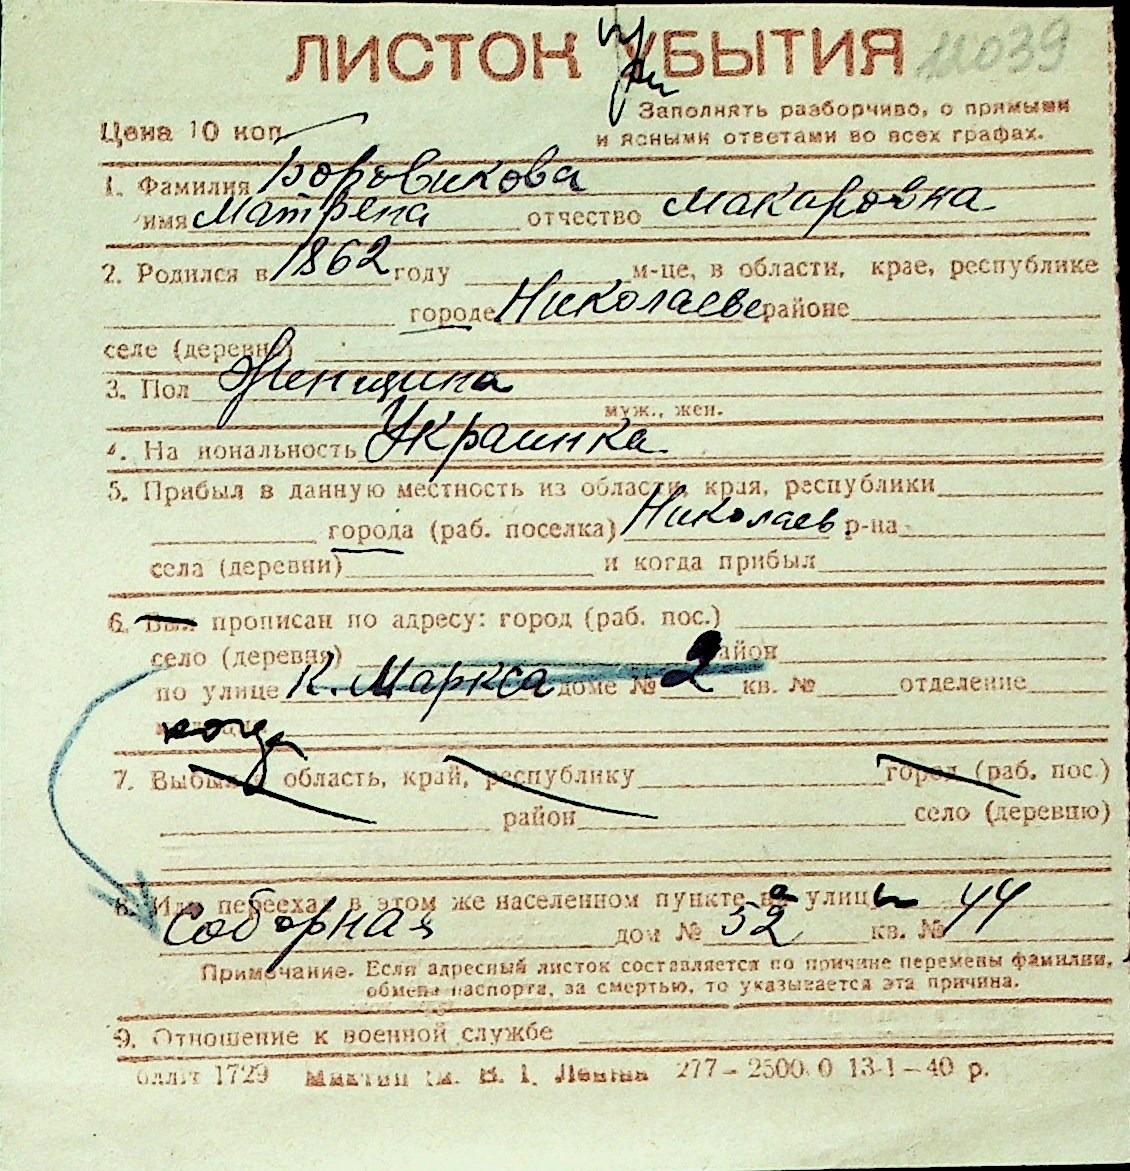 ЛИСТОК УБЫТИЯ 11039
Заполнять разборчиво, с прямыми
Цена 10 коп
и ясными ответами во всех графах.
1. Фамилия Боровикова
имя Матрена отчество Макаровна
2. Родился в 1862 году м-це, в области, крае, республике
городе Николаеве районе
селе (деревне)
3. Пол Женщина
муж., жен.
4. Национальность Украинка
5. Прибыл в данную местность из области, края, республики
города (раб. поселка) Николаев р-на
села (деревни) и когда прибыл
6. Был прописан по адресу: город (раб. пос.)
село (деревня) район
по улице К. Маркса доме № 2 кв. № отделение
7. Выбыл в область, край, республику город (раб. пос.)
район село (деревню)
8. Или переехал в этом же населенном пункте на улицу
Соборная дом № 52 кв. № 44
Примечание. Если адресный листок составляется по причине перемены фамилии,
обмена паспорта, за смертью, то указывается эта причина.
9. Отношение к военной службе
1729 В. І. Леніна 277-2500.0 13-1-40 р.